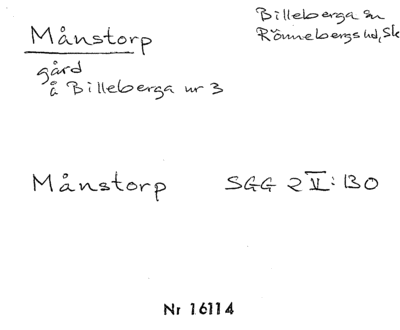 Månstorp
Billeberga sn
Rönnebergs hd, Sk
gård
å Billeberga nr 3
Månstorp SGG 2 V: 130
Nr 16114